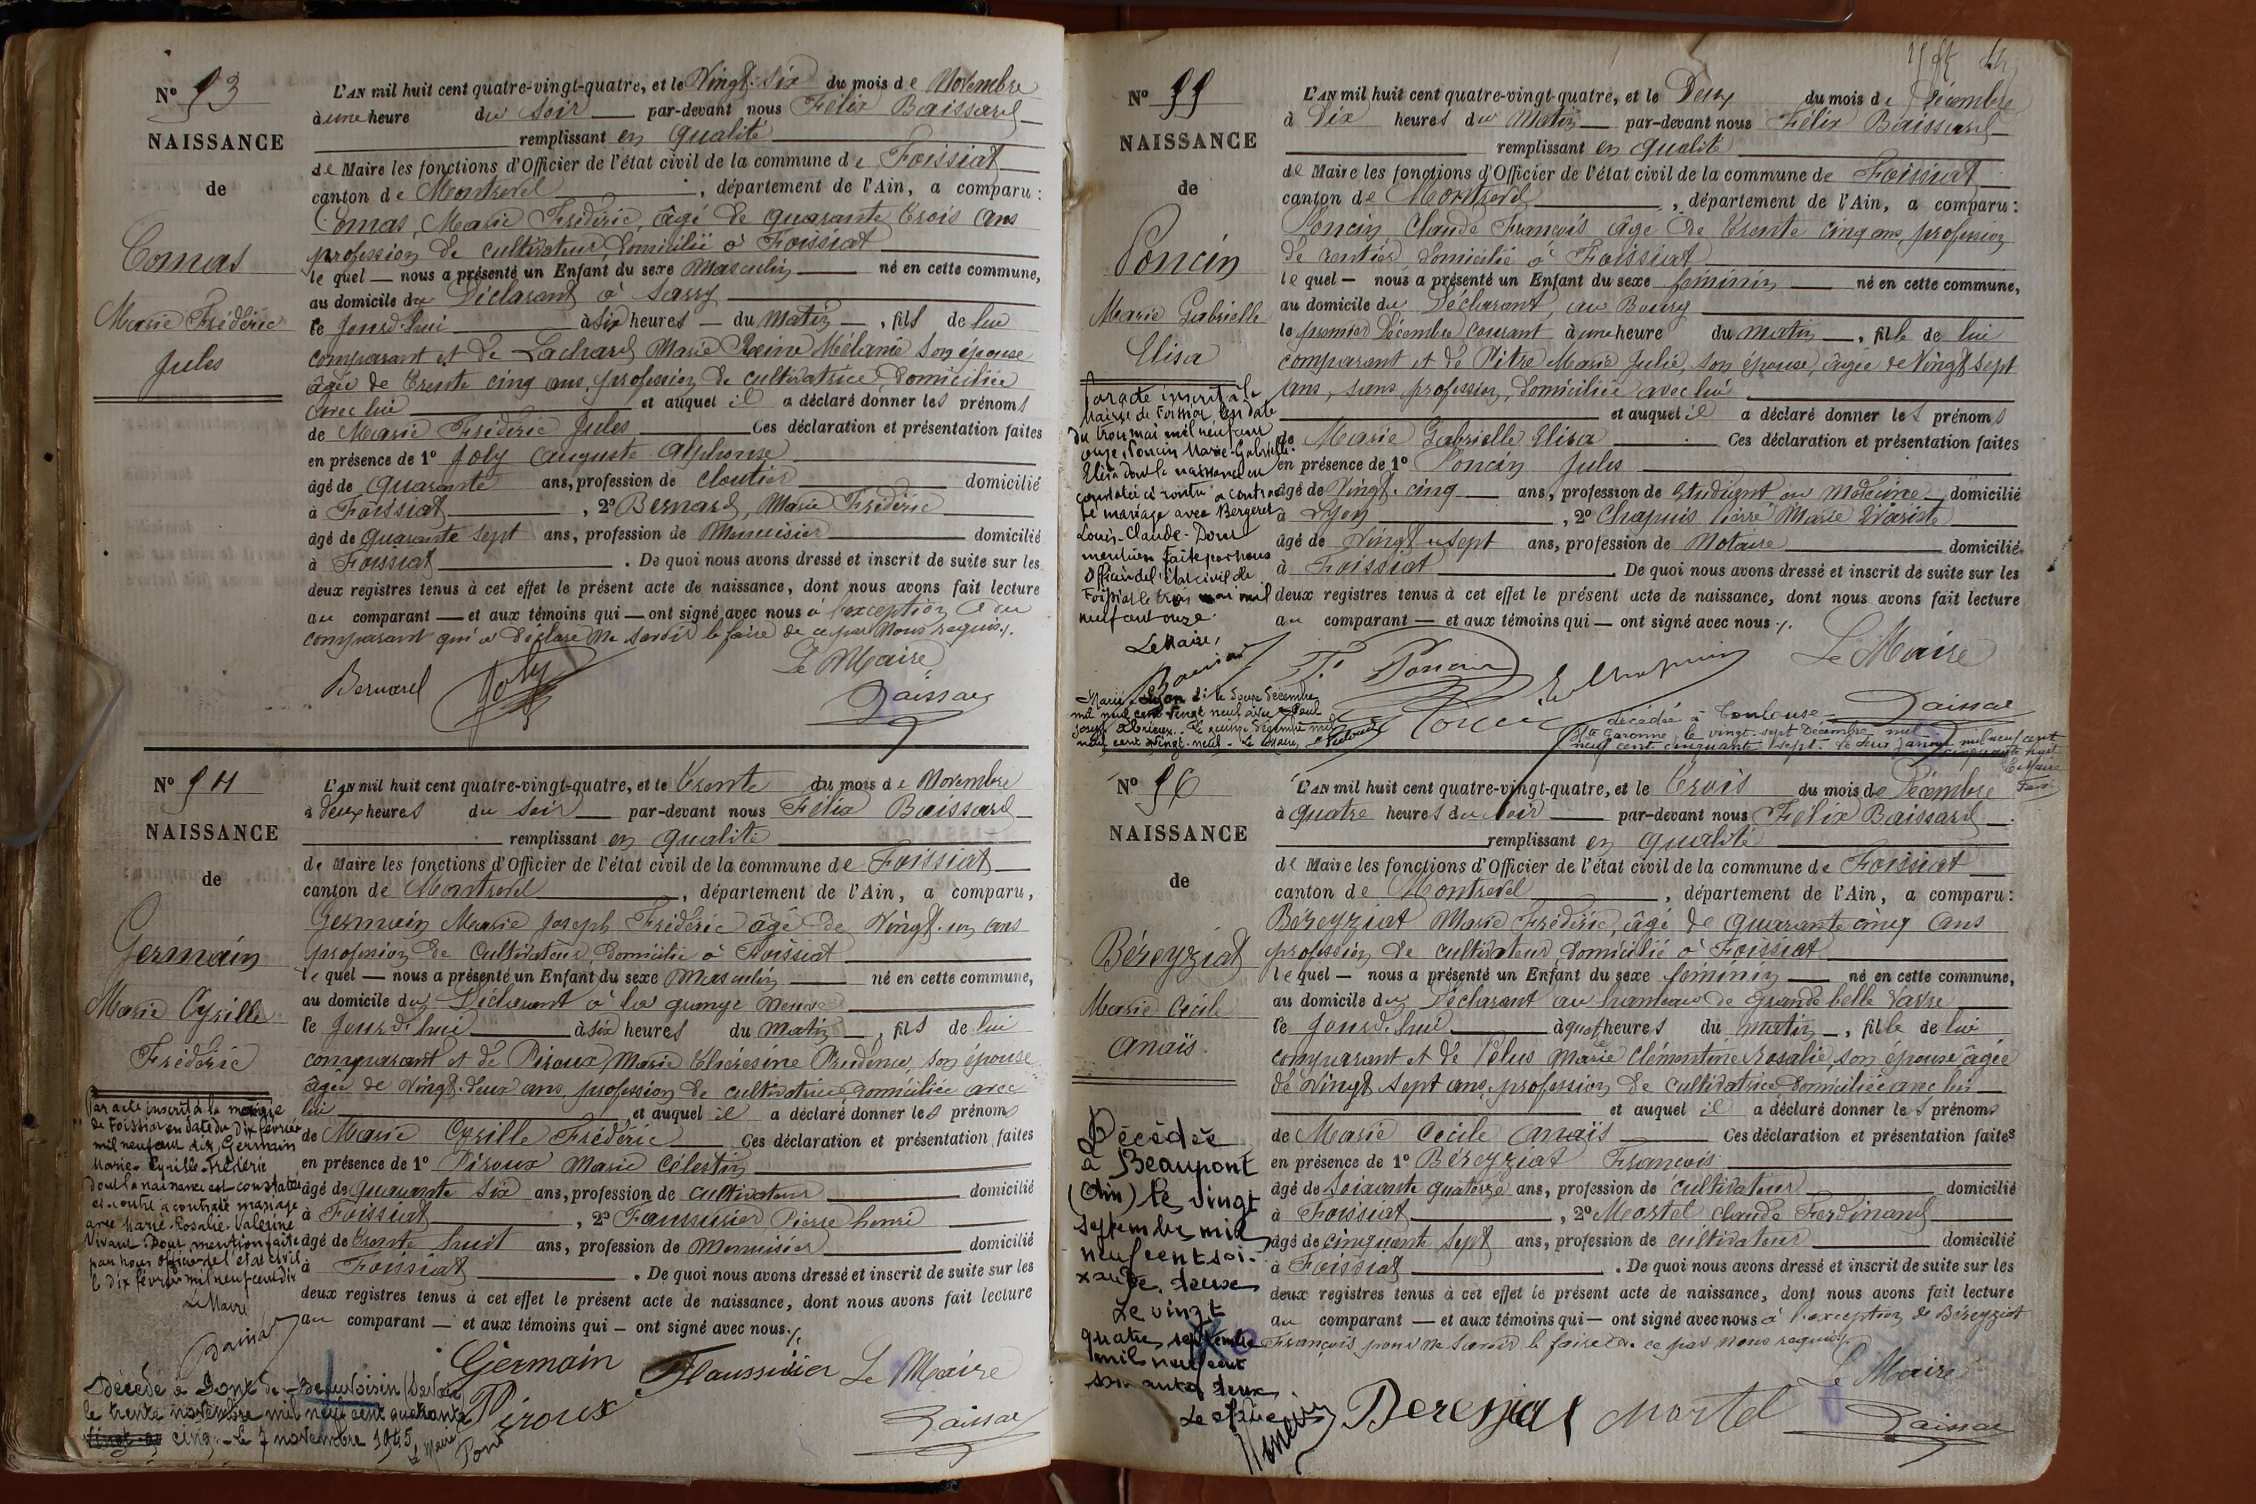 N° 93
NAISSANCE
de
Comas
Marie Frédéric
Jules
L'AN mil huit cent quatre-vingt-quatre, et le Vingt-Six du mois de Novembre
à une heure du Soir par-devant nous Félix Baissard
remplissant en qualité
de Maire les fonctions d'Officier de l'état civil de la commune de Foissiat
canton de Montrevel, département de l'Ain, a comparu:
Comas, Marie Frédéric, âgé de quarante trois ans
profession de cultivateur, domicilié à Foissiat
le quel nous a présenté un Enfant du sexe Masculin né en cette commune,
au domicile du Déclarant à
le jourd'hui à six heures du Matin, fils de lui
comparant et de Lachard Marie Reine Mélanie son épouse
âgée de trente cinq ans, profession de cultivatrice, domiciliée
avec lui et auquel il a déclaré donner les prénoms
de Marie Frédéric Jules Ces déclaration et présentation faites
en présence de 1° Joly Auguste Alphonse
âgé de quarante ans, profession de cloutier domicilié
à Foissiat, 2° Bernard, Marie Frédéric
âgé de quarante sept ans, profession de Menuisier domicilié
à Foissiat. De quoi nous avons dressé et inscrit de suite sur les
deux registres tenus à cet effet le présent acte de naissance, dont nous avons fait lecture
au comparant et aux témoins qui ont signé avec nous à l'exception du
comparant qui a déclaré ne savoir le faire de ce par Nous requis.
Bernard Joly Le Maire
Baissard
N° 94
NAISSANCE
de
Germain
Marie Cyrille
Frédéric
Par acte inscrit à la mairie
de Foissiat en date du Dix février
mil neuf cent dix, Germain
Marie-Cyrille-Frédéric
dont la naissance est constatée
ci-contre a contracté mariage
avec Marie-Rosalie-Valérine
Vivant. Dont mention faite
par nous officier de l'état civil
le dix février mil neuf cent dix
Le Maire
Baissard
Décédé à Pont de Beauvoisin
le trente novembre mil neuf cent quarante
cinq. Le 7 novembre 1945
Le Maire
L'AN mil huit cent quatre-vingt-quatre, et le trente du mois de Novembre
à deux heures du Soir par-devant nous Félix Baissard
remplissant en qualité
de Maire les fonctions d'Officier de l'état civil de la commune de Foissiat
canton de Montrevel, département de l'Ain, a comparu,
Germain Marie Joseph Frédéric âgé de Vingt-un ans
profession de Cultivateur, domicilié à Foissiat
le quel nous a présenté un Enfant du sexe Masculin né en cette commune,
au domicile du Déclarant à la grange neuve
le jourd'hui à six heures du matin, fils de lui
comparant et de Piroux Marie Thérésine Prudence, son épouse
âgée de Vingt-deux ans, profession de cultivatrice, domiciliée avec
lui et auquel il a déclaré donner les prénoms
de Marie Cyrille Frédéric Ces déclaration et présentation faites
en présence de 1° Piroux Marie Célestin
âgé de quarante six ans, profession de cultivateur domicilié
à Foissiat, 2° Faussurier Pierre henri
âgé de trente huit ans, profession de Menuisier domicilié
à Foissiat. De quoi nous avons dressé et inscrit de suite sur les
deux registres tenus à cet effet le présent acte de naissance, dont nous avons fait lecture
au comparant et aux témoins qui ont signé avec nous.
Germain Faussurier Le Maire
Piroux Baissard
N° 95
NAISSANCE
de
Poncin
Marie Gabrielle
Elisa
Par acte inscrit à la
Mairie de Foissiat en date
du trois mai mil neuf cent
onze, Poncin Marie-Gabrielle-
Elisa dont la naissance est
constatée ci contre a contracté
mariage avec Bergeret
Louis-Claude. Dont
mention faite par nous
Officier de l'état civil de
Foissiat le trois mai mil
neuf cent onze.
Le Maire,
Baissard
Mariée à Lyon le douze décembre
mil neuf cent vingt neuf avec Paul
Joseph. Le quinze décembre mil
neuf cent vingt-neuf. Le Maire,
L'AN mil huit cent quatre-vingt-quatre, et le Deux du mois de Décembre
à Dix heures du Matin par-devant nous Félix Baissard
remplissant en qualité
de Maire les fonctions d'Officier de l'état civil de la commune de Foissiat
canton de Montrevel, département de l'Ain, a comparu:
Poncin Claude François âgé de trente cinq ans, profession
de rentier domicilié à Foissiat
le quel nous a présenté un Enfant du sexe féminin né en cette commune,
au domicile du Déclarant, au Bourg
le premier Décembre courant à une heure du matin, fille de lui
comparant et de Pitre Marie Julie, son épouse, âgée de Vingt sept
ans, sans profession, domiciliée avec lui
et auquel il a déclaré donner les prénoms
de Marie Gabrielle Elisa Ces déclaration et présentation faites
en présence de 1° Poncin Jules
âgé de Vingt-cinq ans, profession de Etudiant en Médecine domicilié
à Lyon, 2° Chapuis Pierre Marie Evariste
âgé de Vingt-sept ans, profession de Notaire domicilié
à Foissiat. De quoi nous avons dressé et inscrit de suite sur les
deux registres tenus à cet effet le présent acte de naissance, dont nous avons fait lecture
au comparant et aux témoins qui ont signé avec nous.
F. Poncin Chapuis Le Maire
Poncin Baissard
décédée à Toulouse
Hte Garonne, le vingt-sept Décembre mil
neuf cent cinquante sept. le deux janvier mil neuf cent
cinquante huit
Le Maire
N° 96
NAISSANCE
de
Béreyziat
Marie Cécile
Anaïs
Décédée
à Beaupont
(Ain) le vingt
septembre mil
neuf cent soi-
xante deux
Le vingt
quatre septembre
mil neuf cent
soixante deux
Le Maire
L'AN mil huit cent quatre-vingt-quatre, et le trois du mois de Décembre
à quatre heures du Soir par-devant nous Félix Baissard
remplissant en qualité
de Maire les fonctions d'Officier de l'état civil de la commune de Foissiat
canton de Montrevel, département de l'Ain, a comparu:
Béreyziat Marie Frédéric, âgé de quarante cinq ans
profession de cultivateur domicilié à Foissiat
le quel nous a présenté un Enfant du sexe féminin né en cette commune,
au domicile du Déclarant au hameau de grande belle Vavre
le jourd'hui à quatre heures du matin, fille de lui
comparant et de Pélus Marie Clémentine Rosalie, son épouse âgée
de Vingt sept ans, profession de cultivatrice domiciliée avec lui
et auquel il a déclaré donner les prénoms
de Marie Cécile Anaïs Ces déclaration et présentation faites
en présence de 1° Béreyziat François
âgé de soixante quatorze ans, profession de cultivateur domicilié
à Foissiat, 2° Mortel Claude Ferdinand
âgé de cinquante sept ans, profession de cultivateur domicilié
à Foissiat. De quoi nous avons dressé et inscrit de suite sur les
deux registres tenus à cet effet le présent acte de naissance, dont nous avons fait lecture
au comparant et aux témoins qui ont signé avec nous à l'exception de Béreyziat
François pour ne savoir le faire de ce par nous requis.
Le Maire
Bereyziat Mortel Baissard